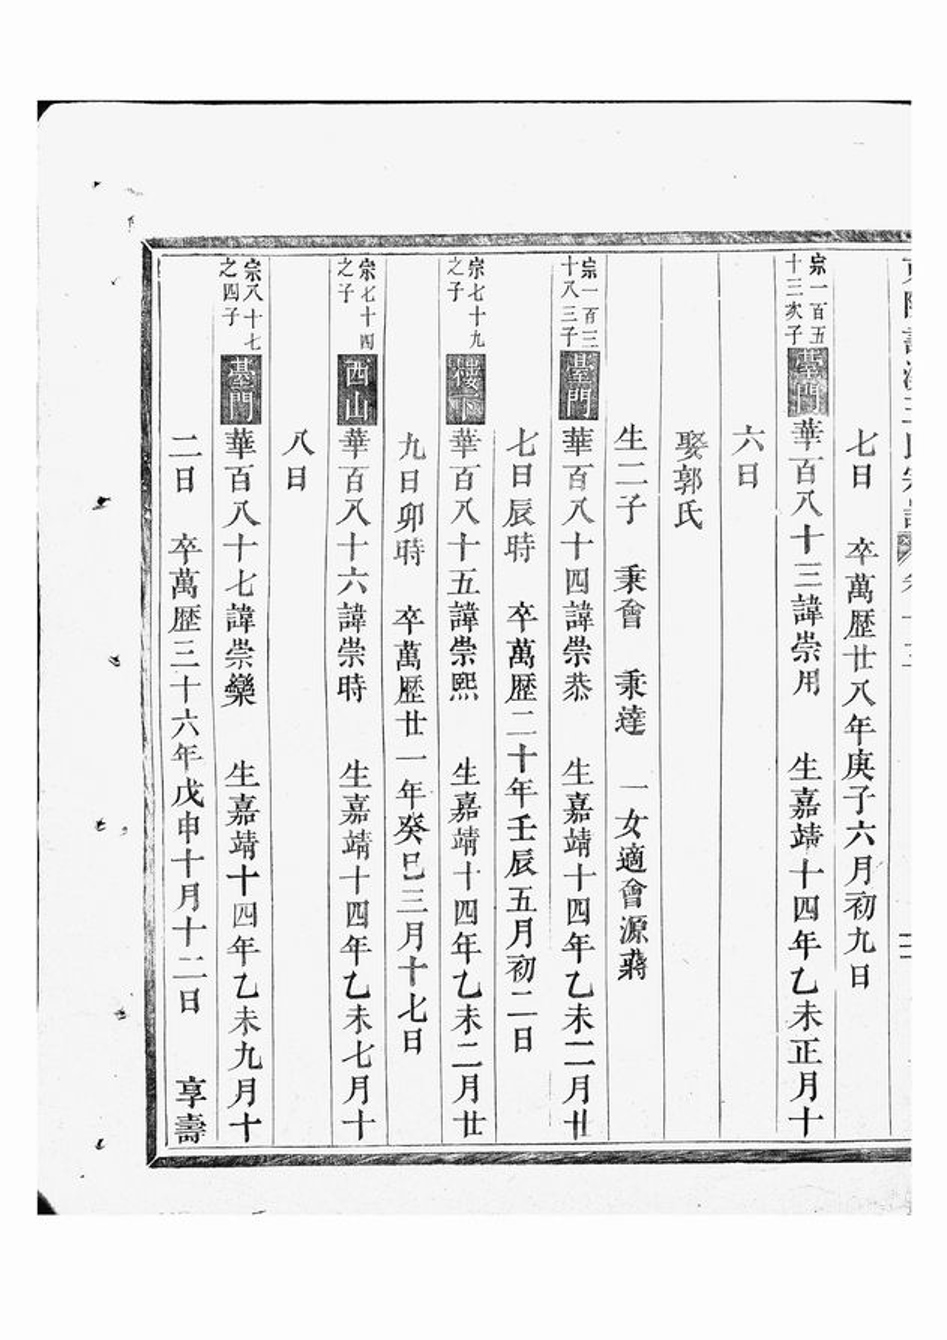 七日　卒萬歷廿八年庚子六月初九日
宗一百五十三次子
臺門
華百八十三諱崇用　生嘉靖十四年乙未正月十
六日
娶郭氏
生二子　秉會　秉達　一女適會源蔣
宗一百三十八三子
臺門
華百八十四諱崇恭　生嘉靖十四年乙未二月廿
七日辰時　卒萬歷二十年壬辰五月初二日
宗七十九之子
樓下
華百八十五諱崇熙　生嘉靖十四年乙未二月廿
九日卯時　卒萬歷廿一年癸巳三月十七日
宗七十四之子
西山
華百八十六諱崇時　生嘉靖十四年乙未七月十
八日
宗八十七之四子
臺門
華百八十七諱崇欒　生嘉靖十四年乙未九月十
二日　卒萬歷三十六年戊申十月十二日　享壽